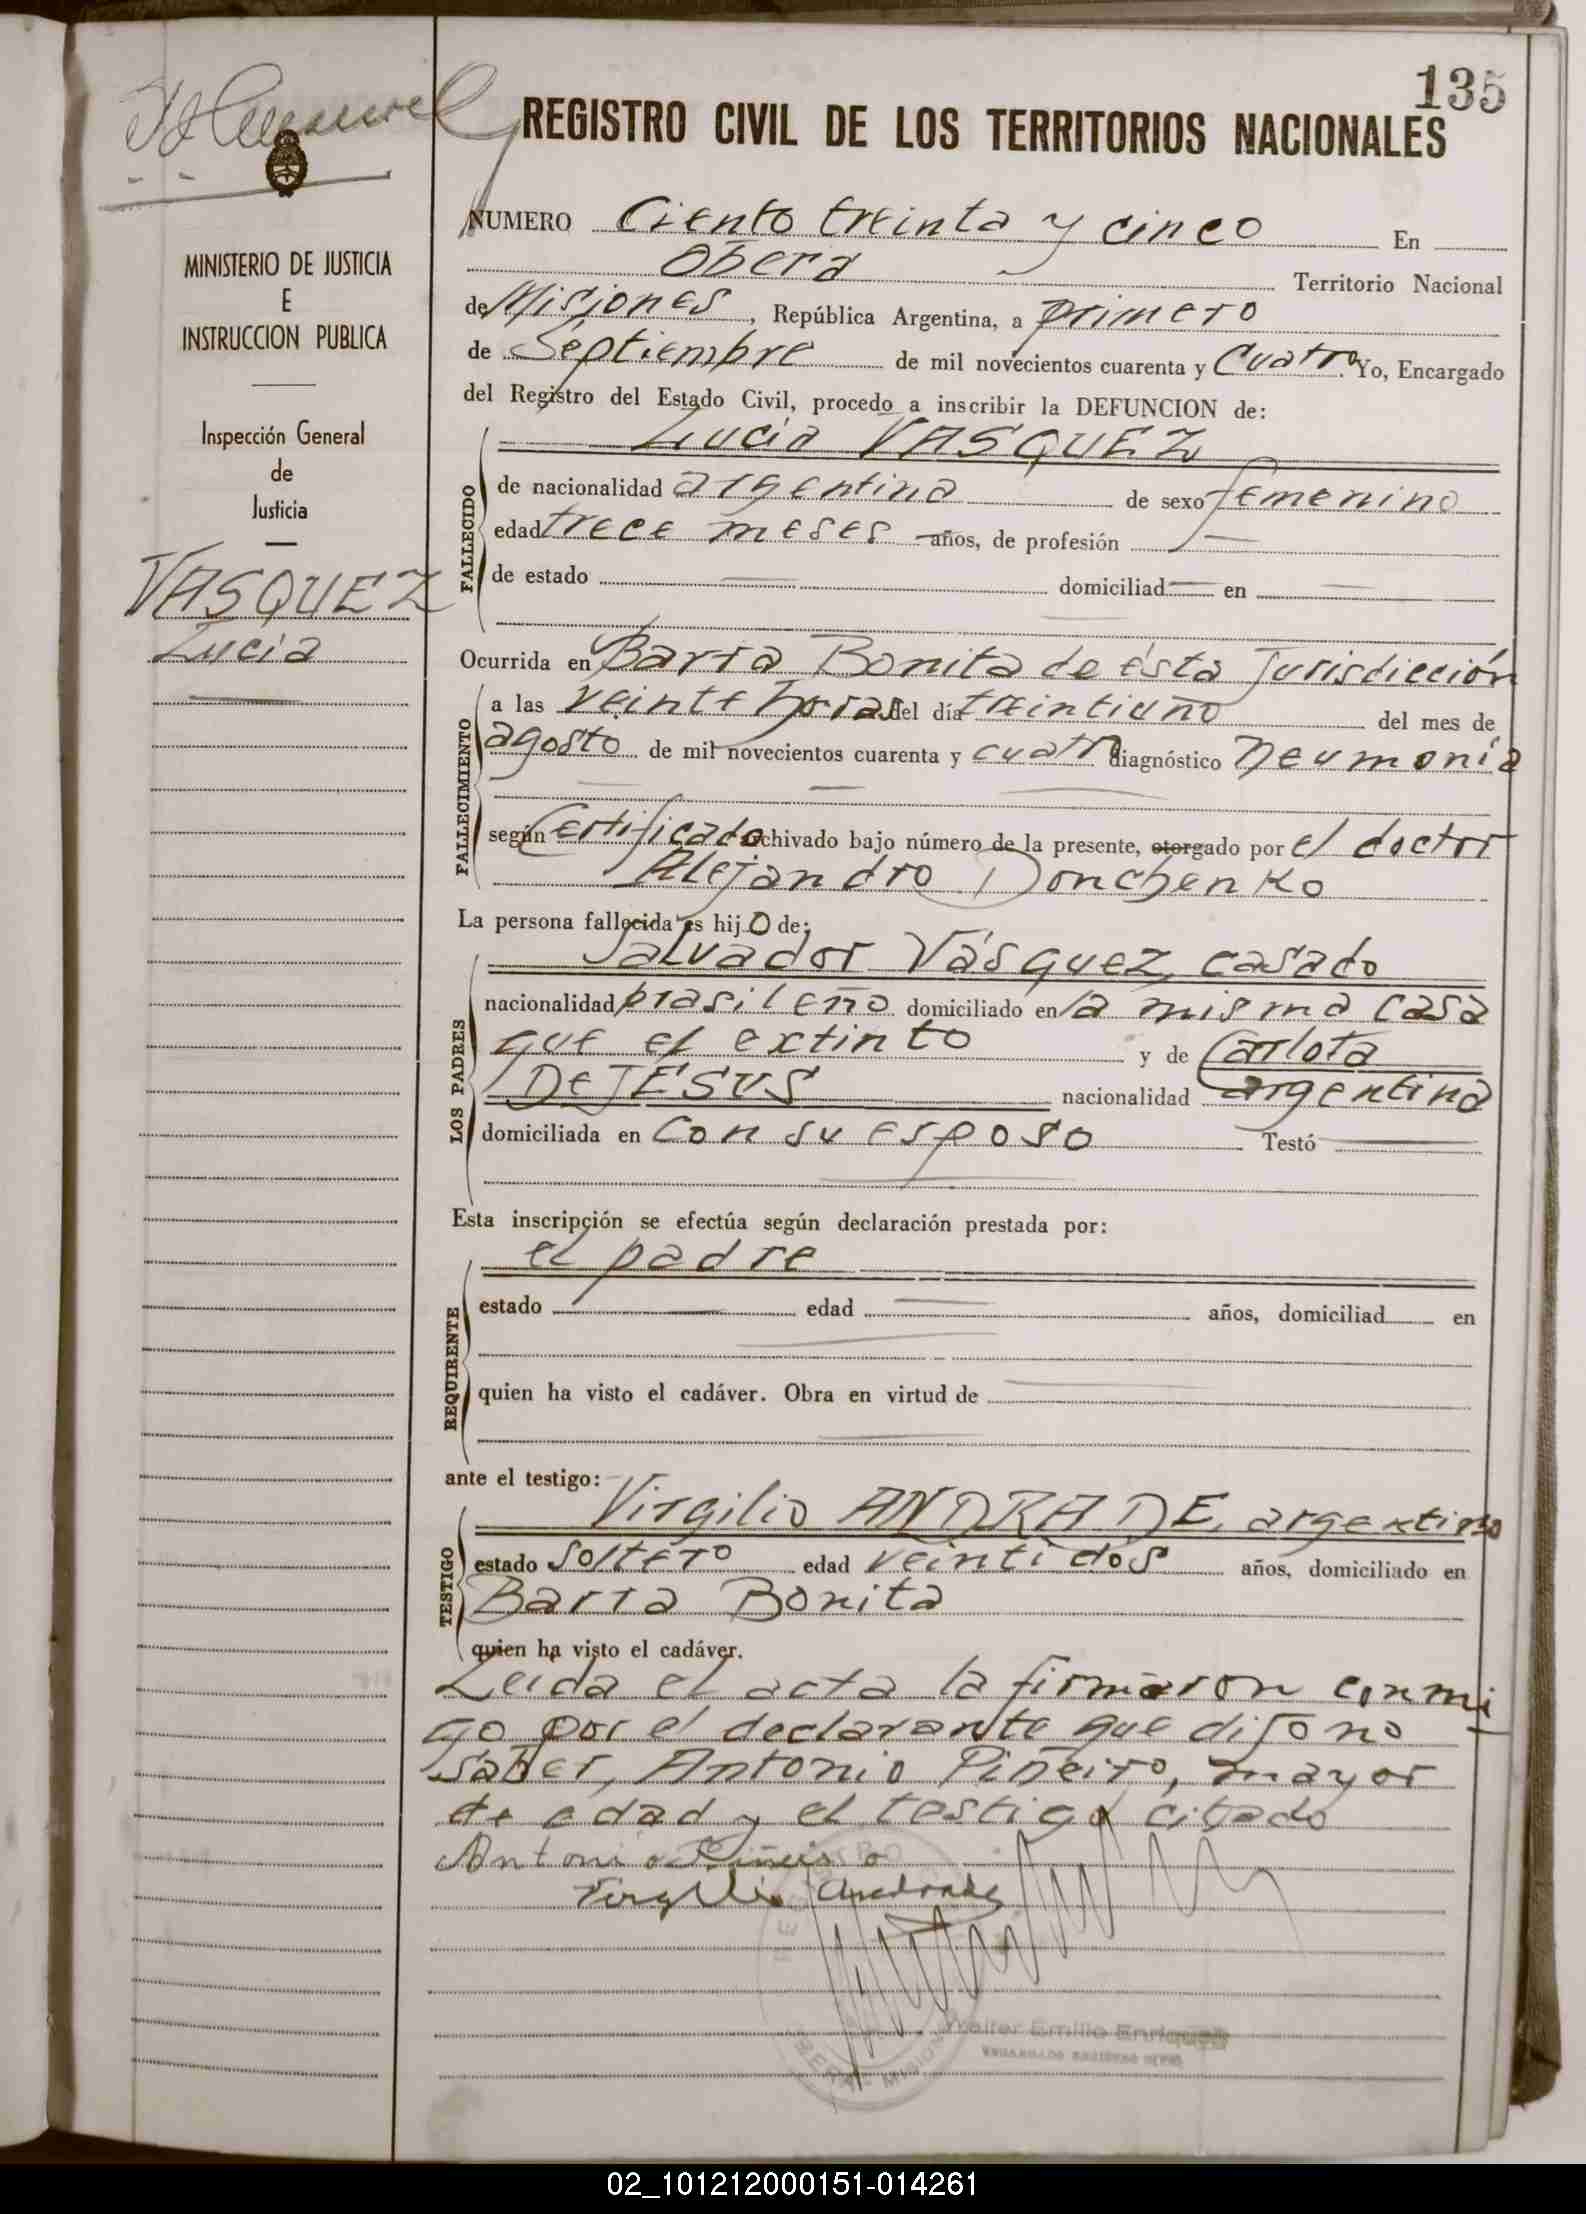 135
REGISTRO CIVIL DE LOS TERRITORIOS NACIONALES
MINISTERIO DE JUSTICIA
E
INSTRUCCION PUBLICA
Inspección General
de
Justicia
VASQUEZ
Lucia
NUMERO Ciento treinta y cinco En
Oberá Territorio Nacional
de Misiones, República Argentina, a primero
de Septiembre de mil novecientos cuarenta y Cuatro Yo, Encargado
del Registro del Estado Civil, procedo a inscribir la DEFUNCION de:
Lucia VASQUEZ
FALLECIDO
de nacionalidad argentina de sexo femenino
edad trece meses años, de profesión —
de estado — domiciliad — en —
Ocurrida en Barra Bonita de ésta Jurisdicción
FALLECIMIENTO
a las veinte horas del día treintiuno del mes de
agosto de mil novecientos cuarenta y cuatro diagnóstico neumonia
según Certificado archivado bajo número de la presente, otorgado por el doctor
Alejandro Donchenko
La persona fallecida es hijo de:
LOS PADRES
Salvador Vásquez, casado
nacionalidad brasileño domiciliado en la misma casa
que el extinto y de Carlota
De JESUS nacionalidad argentina
domiciliada en con su esposo Testó —
Esta inscripción se efectúa según declaración prestada por:
REQUIRENTE
el padre
estado — edad — años, domiciliad en
quien ha visto el cadáver. Obra en virtud de —
ante el testigo:
TESTIGO
Virgilio ANDRADE, argentino
estado soltero edad veintidos años, domiciliado en
Barra Bonita
quien ha visto el cadáver.
Leida el acta la firmaron conmi
go por el declarante que dijo no
saber, Antonio Piñeiro, mayor
de edad y el testigo citado
Antonio Piñeiro
Virgilio Andrade
Walter Emilio Enriquez
OBERA - MISIONES
02_101212000151-014261